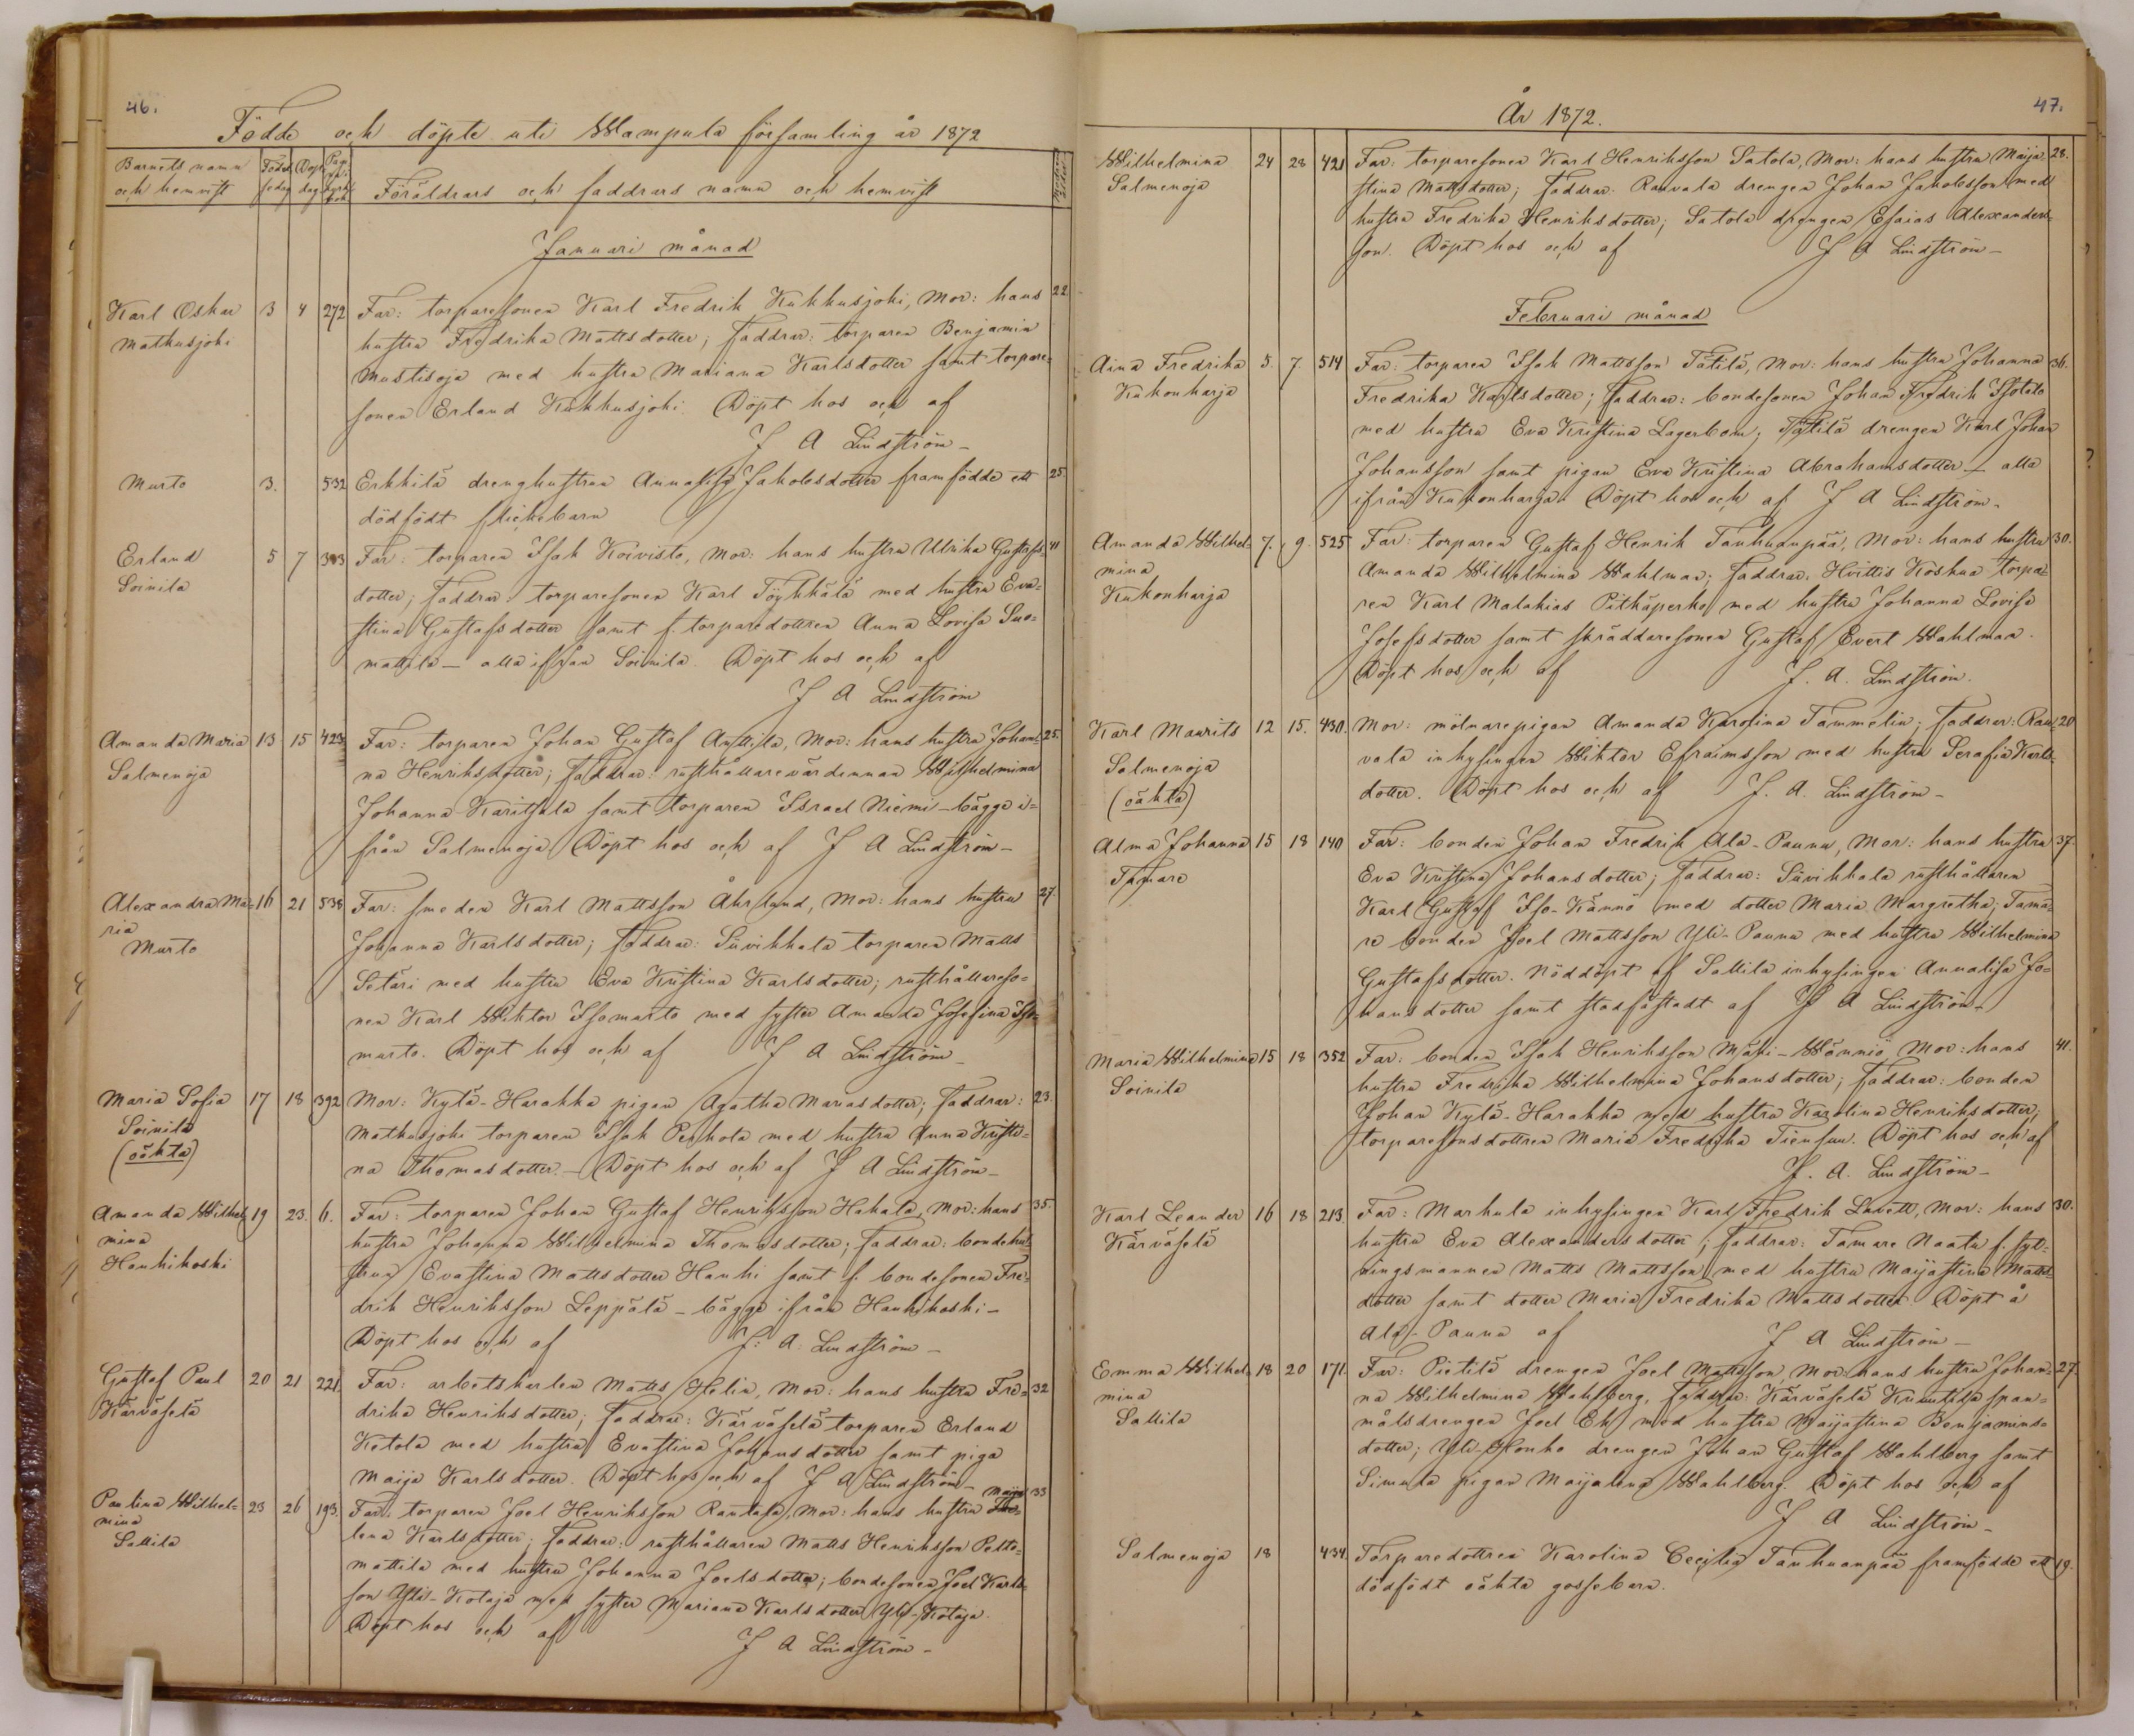 46.
Födde och döpte uti Wampula församling år 1872
Barnets namn och hemvist
Född. Döpt dag
Föräldrars och faddrars namn och hemvist
Januari månad
Karl Oskar 3 4 272 Far: torparesonen Karl Fredrik Kukkusjoki, Mor: hans 22
Matkusjoki hustru Fredrika Mattsdotter; faddrar: torparen Benjamin
Mustisoja med hustru Mariana Karlsdotter samt torpare-
sonen Erland Kukkusjoki. Döpt hos och af
J A Lindström
Murto 3. 532 Erkkilä drenghustrun Annalisa Jakobsdotter framfödde ett 25.
dödfödt flickebarn
Erland 5 7 Far: torparen Isak Koivisto, Mor: hans hustru Ulrika Gustafs- 41
Soinila dotter; faddrar: torparesonen Karl Töykkälä med hustru Eva-
stina Gustafsdotter samt f. torparedottren Anna Lovisa Suo-
mattila — alla ifrån Soinila. Döpt hos och af
J A Lindström
Amanda Maria 13 15 423 Far: torparen Johan Gustaf Anttila, Mor: hans hustru Johan- 25.
Salmenoja na Henriksdotter; faddrar: rusthållarevärdinnan Wilhelmina
Johanna Karitsala samt torparen Israel Niemi — bägge i-
från Salmenoja. Döpt hos och af J A Lindström —
Alexandra Ma- 16 21 538 Far: smeden Karl Mattsson Åhrlund, Mor: hans hustru 27.
ria Johanna Karlsdotter; faddrar: Sävikkala torparen Matts
Murto Sätäri med hustru Eva Kristina Karlsdotter; rusthållareso-
nen Karl Wiktor Isomurto med syster Amanda Josefina Iso-
murto. Döpt hos och af J A Lindström —
Maria Sofia 17 18 392 Mor: Kylä-Harakka pigan Agatha Mariasdotter; faddrar: 23.
Soinila Matkusjoki torparen Isak Penkola med hustru Anna Kristi-
(oäkta) na Thomasdotter. — Döpt hos och af J A Lindström —
Amanda Wilhel- 19 23. 6. Far: torparen Johan Gustaf Henriksson Hakala, Mor: hans 35.
mina hustru Johanna Wilhelmina Thomasdotter; faddrar: bondehu-
Hanhikoski strun Evastina Mattsdotter Hanhi samt f. bondesonen Fre-
drik Henriksson Leppälä — bägge ifrån Hanhikoski —
Döpt hos och af J. A. Lindström —
Gustaf Paul 20 21 221. Far: arbetskarlen Matts Helin, Mor: hans hustru Fre- 32
Kärväselä drika Henriksdotter; faddrar: Kärväselä torparen Erland
Ketola med hustru Evastina Johansdotter samt piga
Maija Karlsdotter. Döpt hos och af J A Lindström —
Paulina Wilhel- 23 26 193. Far: torparen Joel Henriksson Rautala, Mor: hans hustru Maija 33
mina lena Karlsdotter; faddrar: rusthållaren Matts Henriksson Pelto-
Sallila mattila med hustru Johanna Joelsdotter; bondesonen Joel Karls-
son Yli-Kotaja med syster Mariana Karlsdotter Yli-Kotaja.
Döpt hos och af
J A Lindström —
47.
År 1872.
Wilhelmina 24 28 421 Far: torparesonen Karl Henriksson Satola, Mor: hans hustru Maija- 28.
Salmenoja stina Mattsdotter; faddrar: Rauvala drengen Johan Jakobsson med
hustru Fredrika Henriksdotter; Satola drengen Esaias Alexanders-
son. Döpt hos och af J A Lindström —
Februari månad
Aina Fredrika 5. 7. 514 Far: torparen Isak Mattsson Tätilä, Mor: hans hustru Johanna 36.
Kukonharja Fredrika Karlsdotter; faddrar: bondesonen Johan Fredrik Isotalo
med hustru Eva Kristina Lagerbom; Tätilä drengen Karl Johan
Johansson samt pigan Eva Kristina Abrahamsdotter — alla
ifrån Kukonharja. Döpt hos och af J A Lindström.
Amanda Wilhel- 7. 9. 525 Far: torparen Gustaf Henrik Tanhuanpää, Mor: hans hustru 30.
mina Amanda Wilhelmina Wahlman; faddrar: Hvittis Koskua torpa-
Kukonharja ren Karl Malakias Pitkäperko med hustru Johanna Lovisa
Josefsdotter samt skräddaresonen Gustaf Evert Wahlman.
Döpt hos och af J. A. Lindström.
Karl Maurits 12 15. 430. Mor: mölnarepigan Amanda Karolina Tammelin; faddrar: Rau- 20
Salmenoja vala inhysingen Wiktor Efraimsson med hustru Serafia Karls-
(oäkta) dotter. Döpt hos och af J. A. Lindström —
Alma Johanna 15 18 140 Far: bonden Johan Fredrik Ala-Paunu, Mor: hans hustru 37.
Tamare Eva Kristina Johansdotter; faddrar: Sävikkala rusthållaren
Karl Gustaf Iso-Kännö med dotter Maria Margretha; Tama-
re bonden Joel Mattsson Yli-Pauna med hustru Wilhelmina
Gustafsdotter. Nöddöpt af Sallila inhysingen Annalisa Jo-
hansdotter samt stadfästadt af J A Lindström —
Maria Wilhelmina 15 18 352 Far: bonden Isak Henriksson Mäki-Wänniö, Mor: hans 41.
Soinila hustru Fredrika Wilhelmina Johansdotter; faddrar: bonden
Johan Kylä-Harakka med hustru Karolina Henriksdotter;
torparesonsdottren Maria Fredrika Tiensuu. Döpt hos och af
J. A. Lindström —
Karl Leander 16 18 213. Far: Markula inhysingen Karl Fredrik Lavett, Mor: hans 30.
Kärväselä hustru Eva Alexandersdotter; faddrar: Tamare Naatu f. fjer-
dingsmannen Matts Mattsson med hustru Maijastina Matts-
dotter samt dotter Maria Fredrika Mattsdotter. Döpt å
Ala-Pauna af J A Lindström —
Emma Wilhel- 18 20 171. Far: Pietilä drengen Joel Mattsson, Mor: hans hustru Johan- 27.
mina na Wilhelmina Wahlberg, faddrar: Kärväselä Knuutila span-
Sallila målsdrengen Joel Ek med hustru Maijastina Benjamins-
dotter; Yli-Honko drengen Johan Gustaf Wahlberg samt
Simula pigan Maijalena Wahlberg. Döpt hos och af
J A Lindström —
Salmenoja 18 434. Torparedottren Karolina Cecilia Tanhuanpää framfödde ett 19.
dödfödt oäkta gossebarn.